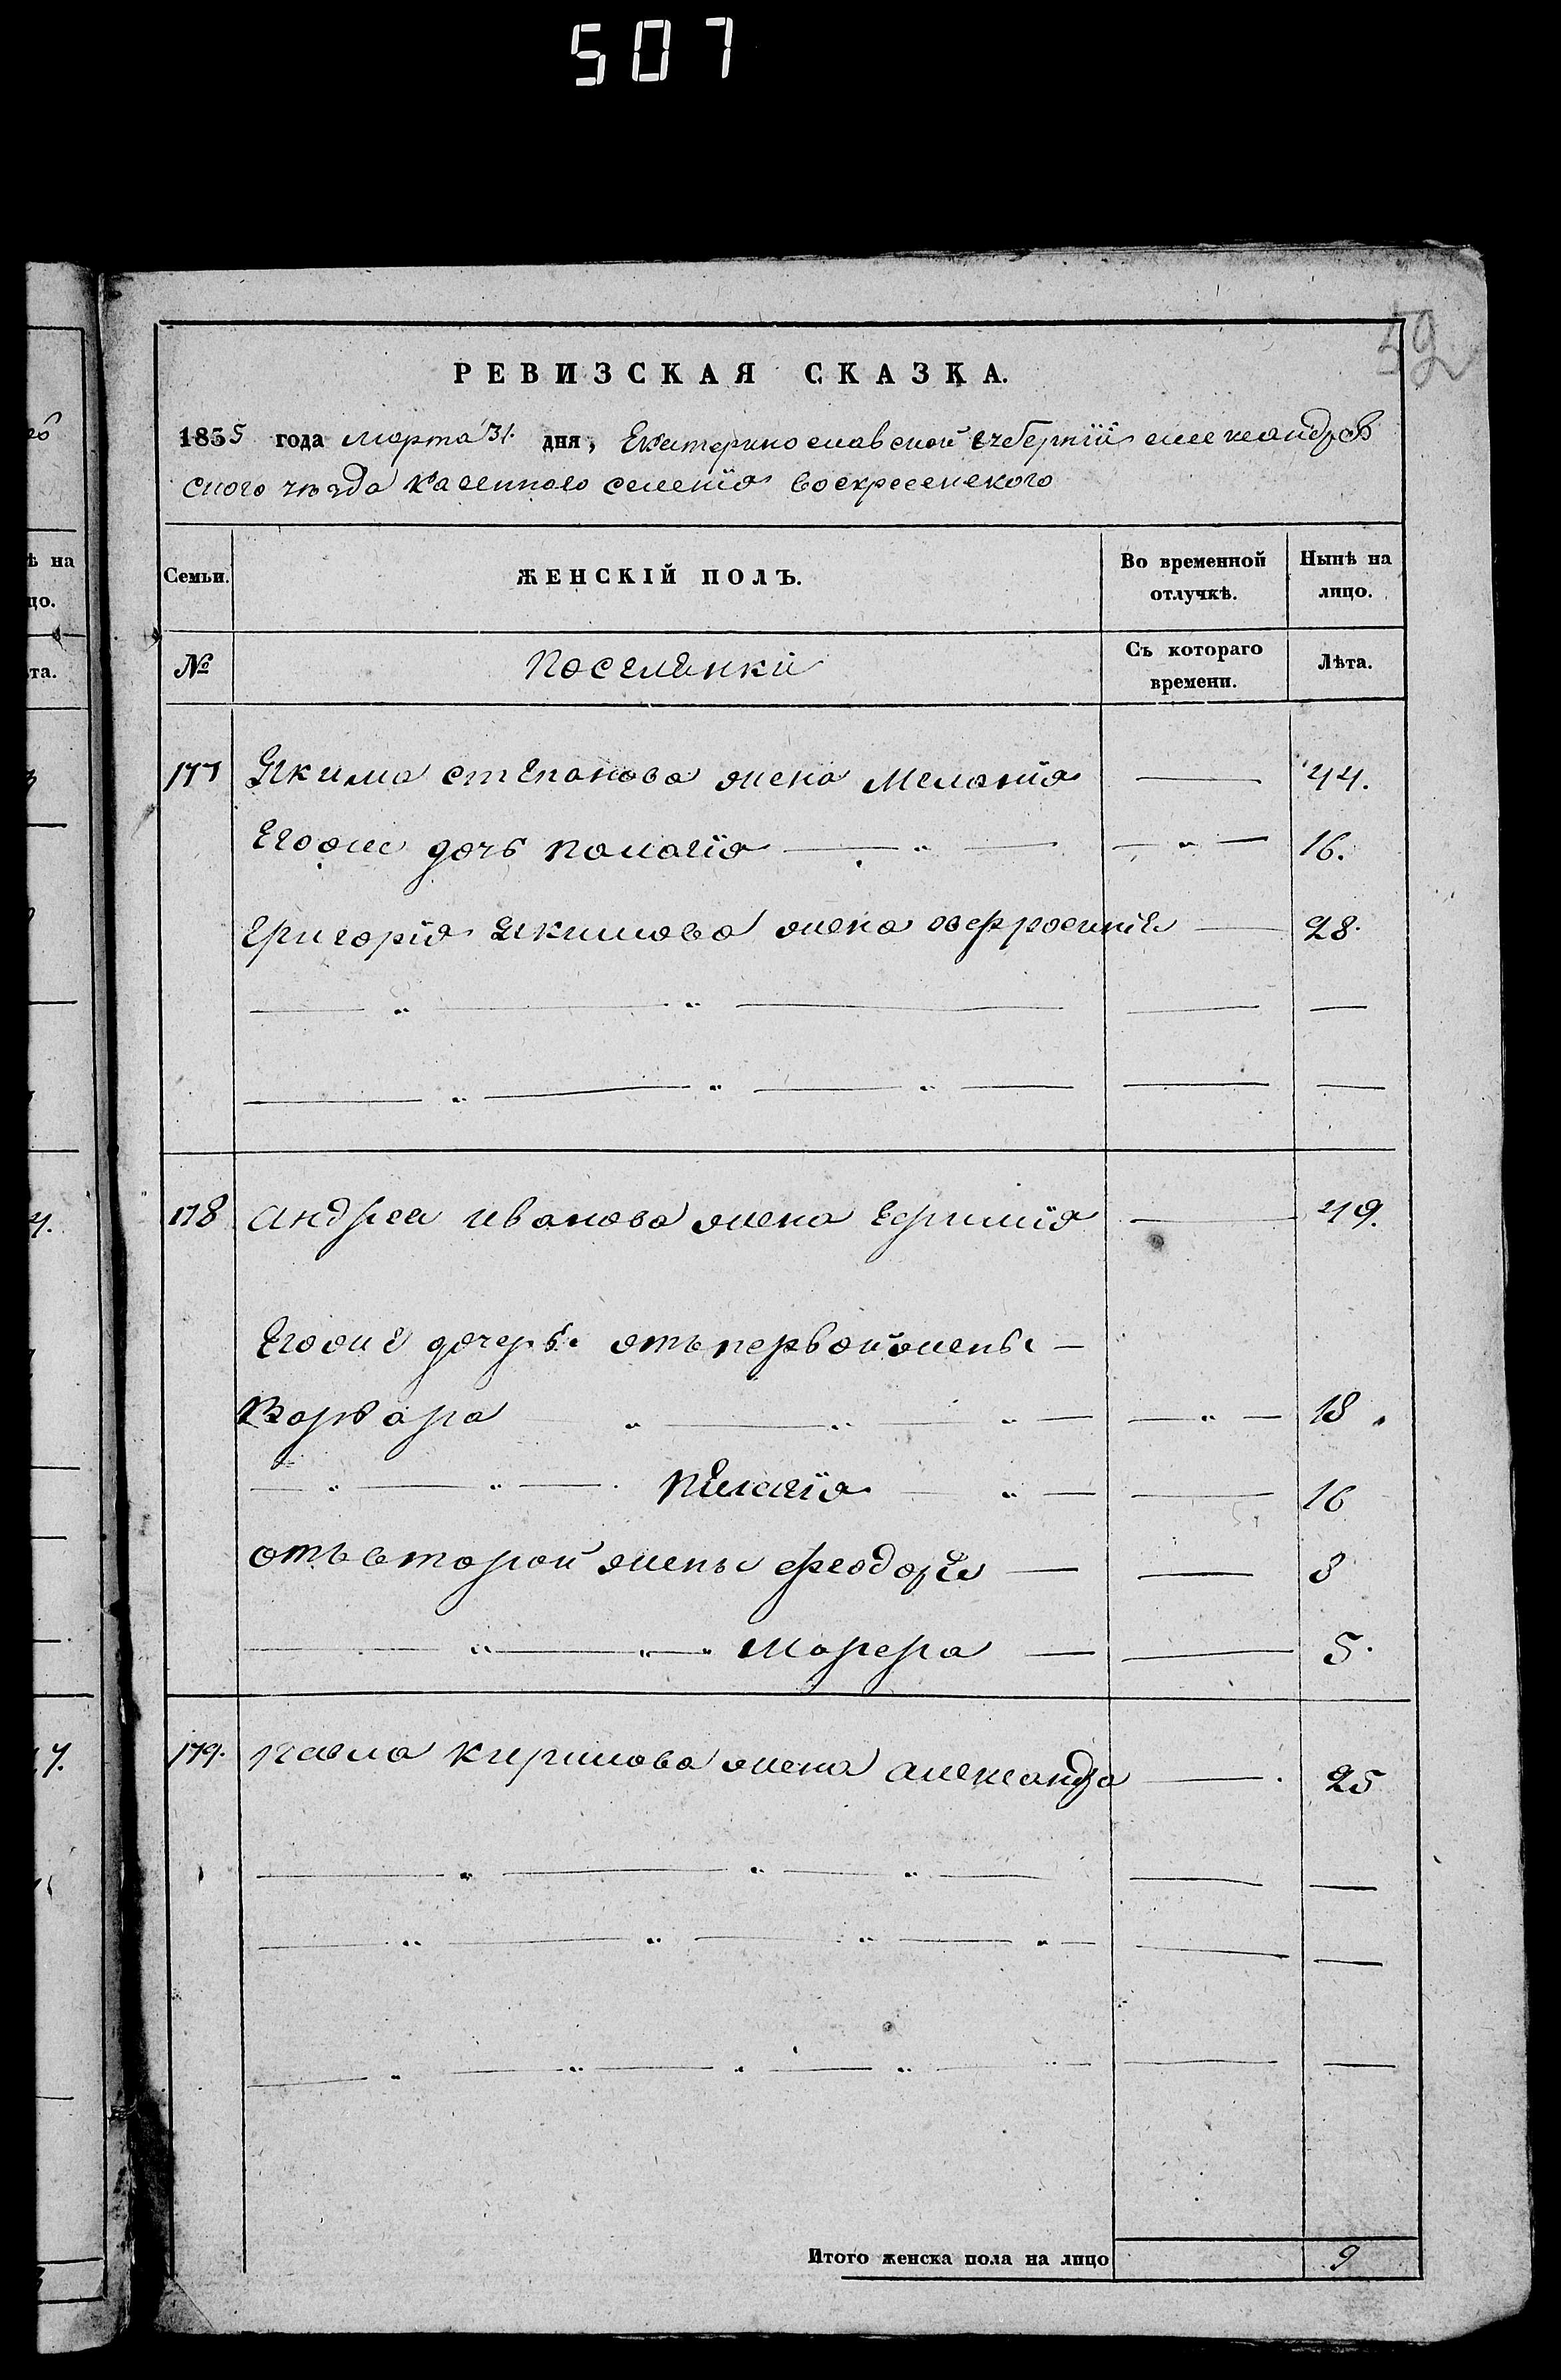 507
52
РЕВИЗСКАЯ СКАЗКА.
1855 года марта 31. дня, Екатеринославской губерніи александров
ского уѣзда казенного селенія воскресенского
Семьи.
ЖЕНСКІЙ ПОЛЪ.
Во временной отлучкѣ.
Нынѣ на лицо.
№
Поселянки
Съ котораго времени.
Лѣта.
177 Якима степанова жена Меланія 44.
Егоже дочь палагія 16.
Григорія Якимова жена 28.
178 андрея иванова жена Ефимія 49.
Егоже дочери отъ первой жены
Варвара 18.
пелагія 16
отъ второй жены феодора 8
марфра 5.
179. павла жена александра 25
Итого женска пола на лицо 9